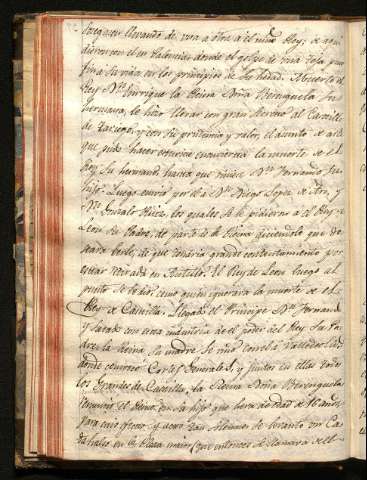 llevando de una a otra a el niño Rey; se
en Palencia, donde el golpe de una teja puso
fin a su vida en los principios de su edad. Muerto el
Rey Dn. Enrrique la Reina Doña Berenguela su
hermana, le hizo llevar con gran secreto al Castillo
de y con su prudencia y valor, el
que pudo hacer la muerte de el
Rey su hermano hasta que viniese Dn. Fernando su
hijo. Luego envió por él a Dn. Diego Lopez de Aro, y
Dn. Gonzalo Ruiz, los quales se le pidieron a el Rey de
Leon su Padre, de parte de la Reina diciendole que de-
seara verle, de que tendria grande contentamiento por
estar retirada en Autillo. El Rey de Leon luego al
punto se le dio, como quien ignoraba la muerte de el
Rey de Castilla. Llegado el Principe Dn. Fernando
y sacado con esta industria de el poder del Rey su Pa-
dre, la Reina su madre se vino con él a Valladolid,
donde Cortes Generales, y juntos en ellas todos
los Grandes de Castilla, la Reina Doña Berenguela
renunció el Reino en su hijo que era de edad de 18 años,
para cuio efecto y acto tan solemne se levanto un Ca-
dahalso en la Plaza maior (que entonces se llamaba de el